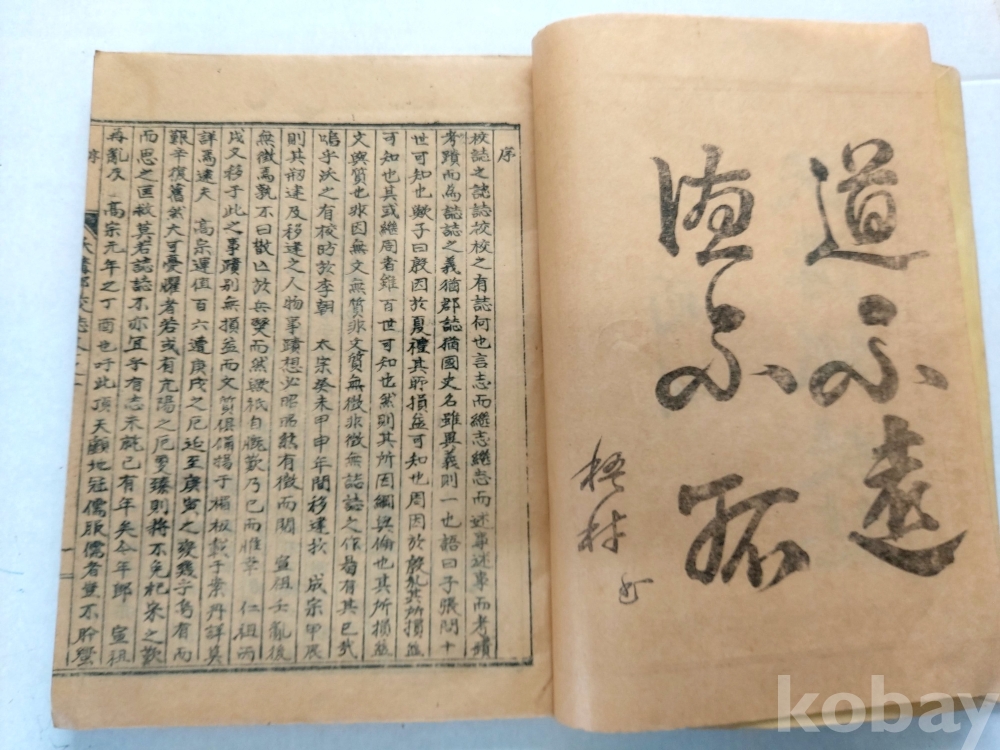 道不遠
德不孤
梧村
書
序
校誌之誌誌校校之有誌何也言志而繼志繼志而述事述事而考蹟
考蹟而爲誌誌之義猶郡誌猶國史名雖異義則一也語曰子張問十
世可知也歟子曰殷因於夏禮其所損益可知也周因於殷禮其所損益
可知也其或繼周者雖百世可知也然則其所因綱與倫也其所損益
文與質也非因無文無質非文質無徵非徵無誌誌之作豈有其已哉
嗚乎沃之有校昉於李朝 太宗癸未甲申年間移建於 成宗甲辰
則其刱建及移建之人物事蹟想必昭昭然有徵而閱 宣祖壬亂後
無徵焉孰不曰散亡於兵燹而然歟秖自慨歎乃已而惟幸 仁祖丙
戌又移于此之事蹟別無損益而文質俱備揭于楣板載于素丹詳莫
詳焉達夫 高宗運値百六遭庚戌之厄近至庚寅之變幾乎烏有而
艱辛復舊然大可憂懼者若或有亢陽之厄屢臻則將不免杞宋之歎
而思之匡救莫若誌誌不亦宜乎有志未就已有年矣今年郞 宣祖
再亂及 高宗元年之丁酉也吁此頂天顧地冠儒服儒者豈不矜蠻
序
沃溝鄕校誌
一
kobay